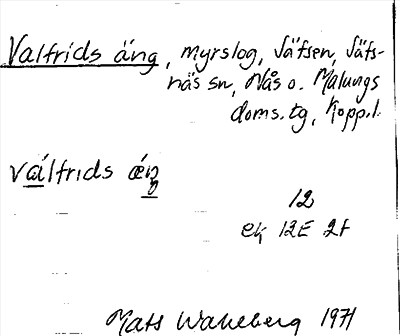 Valfrids äng, myrslog, Säfsen, Säfs-
näs sn, Nås o. Malungs
doms.tg, Kopp.l.
válfrids áŋ
12
ek 12E 2f
Mats Wahlberg 1971